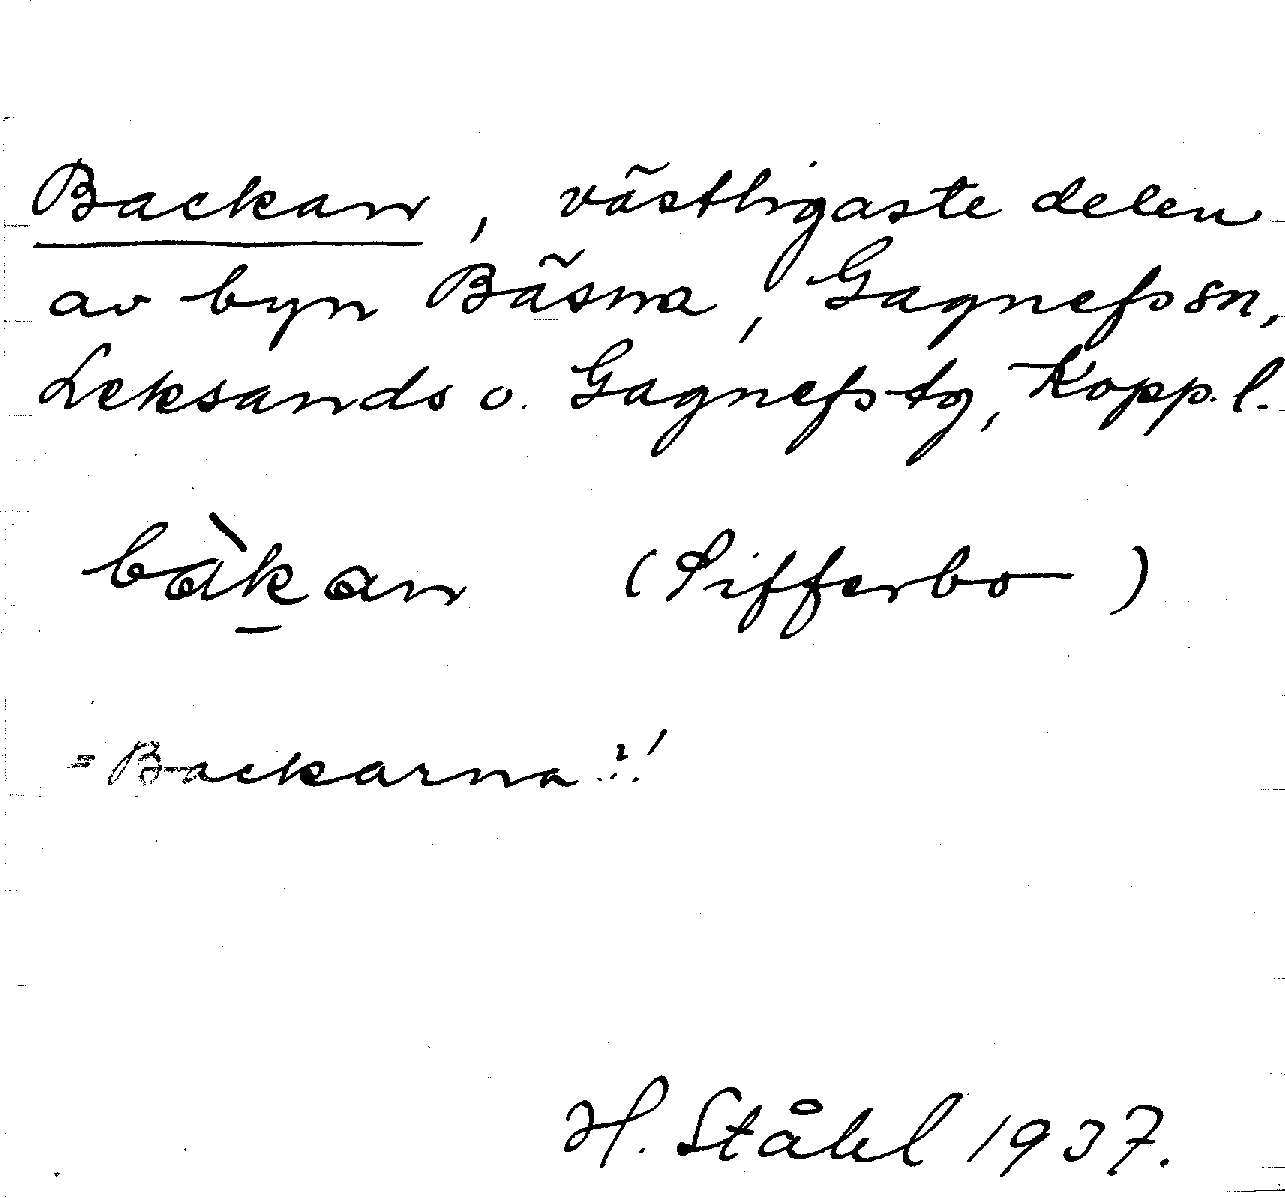 Backan, västligaste delen
av byn Bäsna, Gagnefs sn,
Leksands o. Gagnefs tg, Kopp. l.
bàk̠an (Sifferbo)
= Backarna?!
H. Ståhl 1937.